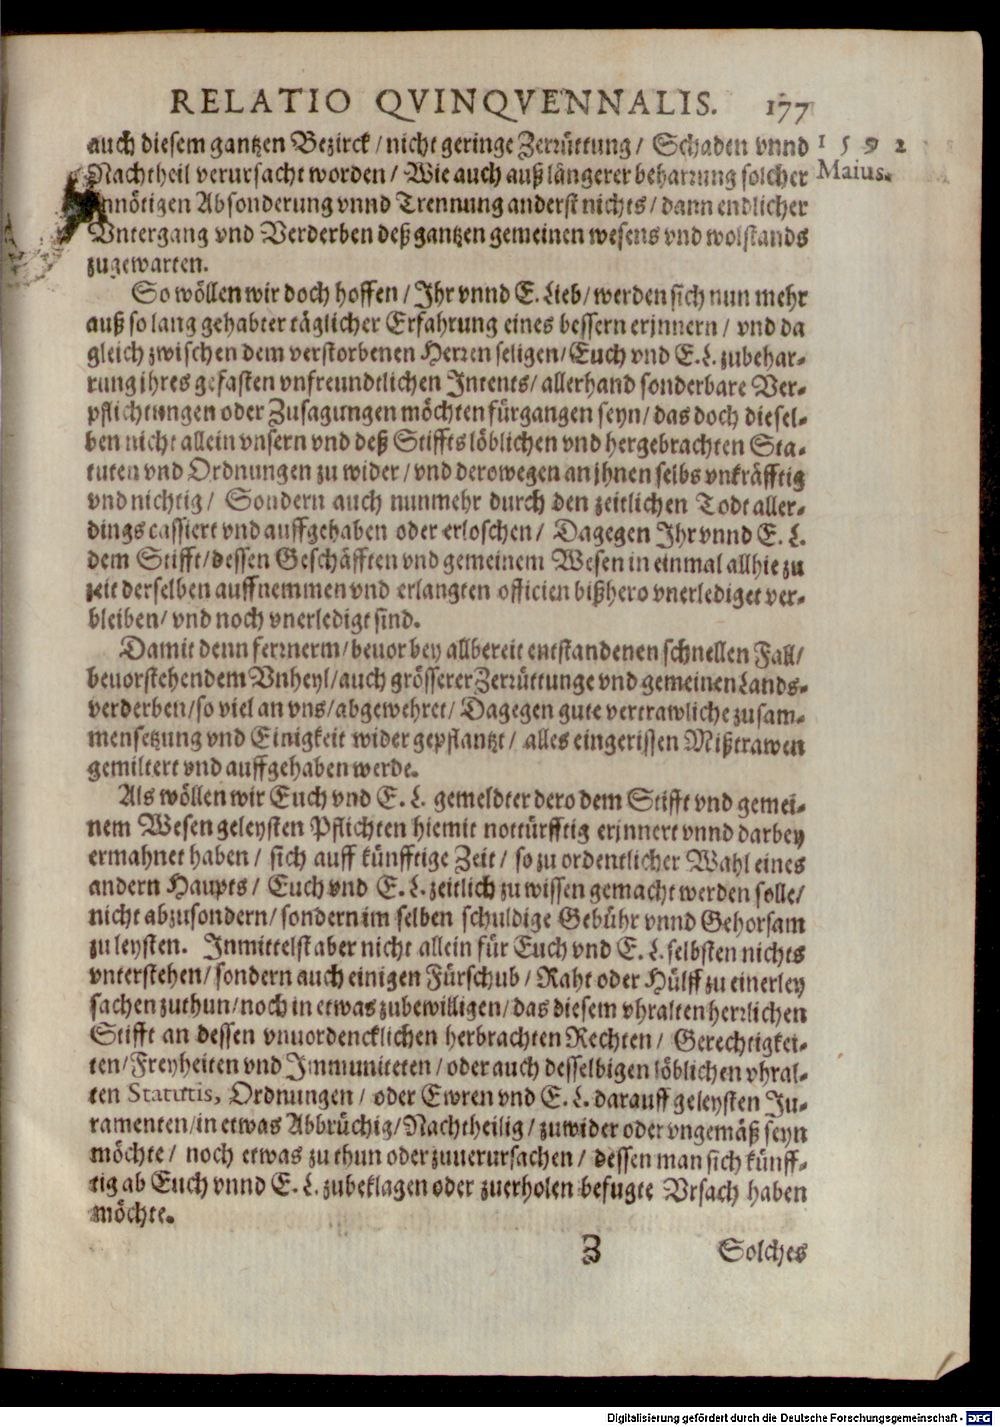 RELATIO QVINQVENNALIS. 177
auch diesem gantzen Bezirck / nicht geringe Zerrüttung / Schaden vnnd 1 5 9 2
Nachtheil verursacht worden / Wie auch auß längerer beharrung solcher Maius.
nnötigen Absonderung vnnd Trennung anderst nichts / dann endlicher
Vntergang vnd Verderben deß gantzen gemeinen wesens vnd wolstands
zugewarten.
So wöllen wir doch hoffen / Ihr vnnd E. Lieb / werden sich nun mehr
auß so lang gehabter täglicher Erfahrung eines bessern erjnnern / vnd da
gleich zwischen dem verstorbenen Herren seligen / Euch vnd E. L. zubehar-
rung jhres gefasten vnfreundtlichen Intents / allerhand sonderbare Ver-
pflichtungen oder Zusagungen möchten fürgangen seyn / das doch diesel-
ben nicht allein vnsern vnd deß Stiffts löblichen vnd hergebrachten Sta-
tuten vnd Ordnungen zu wider / vnd derowegen an jhnen selbs vnkräfftig
vnd nichtig / Sondern auch nunmehr durch den zeitlichen Todt aller-
dings cassiert vnd auffgehaben oder erloschen / Dagegen Ihr vnnd E. L.
dem Stifft / dessen Geschäfften vnd gemeinem Wesen in einmal allhie zu
zeit derselben auffnemmen vnd erlangten officien bißhero vnerlediget ver-
bleiben / vnd noch vnerledigt sind.
Damit denn ferrnerm / beuor bey allbereit entstandenen schnellen Fall /
beuorstehendem Vnheyl / auch grösserer Zerrüttunge vnd gemeinen Lands-
verderben / so viel an vns / abgewehret / Dagegen gute vertrawliche zusam-
mensetzung vnd Einigkeit wider gepflantzt / alles eingerissen Mißtrawen
gemiltert vnd auffgehaben werde.
Als wöllen wir Euch vnd E. L. gemeldter dero dem Stifft vnd gemei-
nem Wesen geleysten Pflichten hiemit nottürfftig erjnnert vnnd darbey
ermahnet haben / sich auff künfftige Zeit / so zu ordentlicher Wahl eines
andern Haupts / Euch vnd E. L. zeitlich zu wissen gemacht werden solle /
nicht abzusondern / sondern im selben schuldige Gebühr vnnd Gehorsam
zu leysten. Inmittelst aber nicht allein für Euch vnd E. L. selbsten nichts
vnterstehen / sondern auch einigen Fürschub / Raht oder Hülff zu einerley
sachen zuthun / noch in etwas zubewilligen / das diesem vhralten herrlichen
Stifft an dessen vnuordencklichen herbrachten Rechten / Gerechtigkei-
ten / Freyheiten vnd Immuniteten / oder auch desselbigen löblichen vhral-
ten Statutis, Ordnungen / oder Ewren vnd E. L. darauff geleysten Ju-
ramenten / in etwas Abbrüchig / Nachtheilig / zuwider oder vngemäß seyn
möchte / noch etwas zu thun oder zuuerursachen / dessen man sich künff-
tig ab Euch vnnd E. L. zubeklagen oder zuerholen befugte Vrsach haben
möchte.
Z Solches
Digitalisierung gefördert durch die Deutsche Forschungsgemeinschaft - DFG